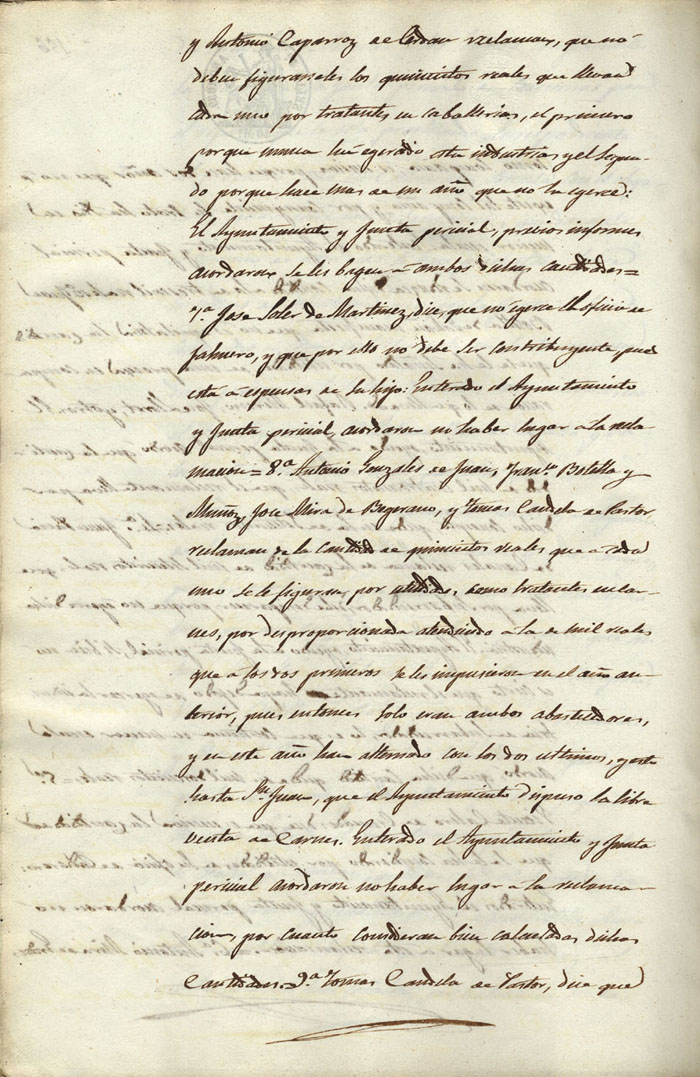 y Antonio Caparroz de Cerdan reclaman, que no
deben figurarseles los quinientos reales que llevan
cada uno por tratantes en caballerias, el primero
porque nunca há egercido esta industria, y el Segun-
do porque hace mas de un año que no la egerce:
El Ayuntamiento y Junta pericial, previos informes
acordaron se les bague á ambos dichas cantidades=
7.ª Jose Soler de Martinez, dice, que no egerce el oficio de
palmero, y que por ello no debe ser contribuyente, pues
está á espensas de su hijo: Enterado el Ayuntamiento
y Junta pericial, acordaron no haber lugar a la recla-
macion= 8.ª Antonio Gonzales de Juan, Fran.co Botella y
Muñoz, Jose Mira de Begerano, y Tomas Candela de Pastor,
reclaman de la cantidad de quinientos reales que a cada
uno se le figuran por utilidades, como tratantes en car-
nes, por desproporcionada atendiendo a la de mil reales
que a los dos primeros se les impusieron en el año an-
terior, pues entonces solo eran ambos abastecedores,
y en este año han alternado con los dos ultimos, y esto
hasta Sn. Juan, que el Ayuntamiento dispuso la libre
venta de Carnes. Enterado el Ayuntamiento y Junta
pericial acordaron no haber lugar a la reclama-
cion, por cuanto consideran bien calculadas dichas
Cantidades. 9.ª Tomas Candela de Pastor, dice que